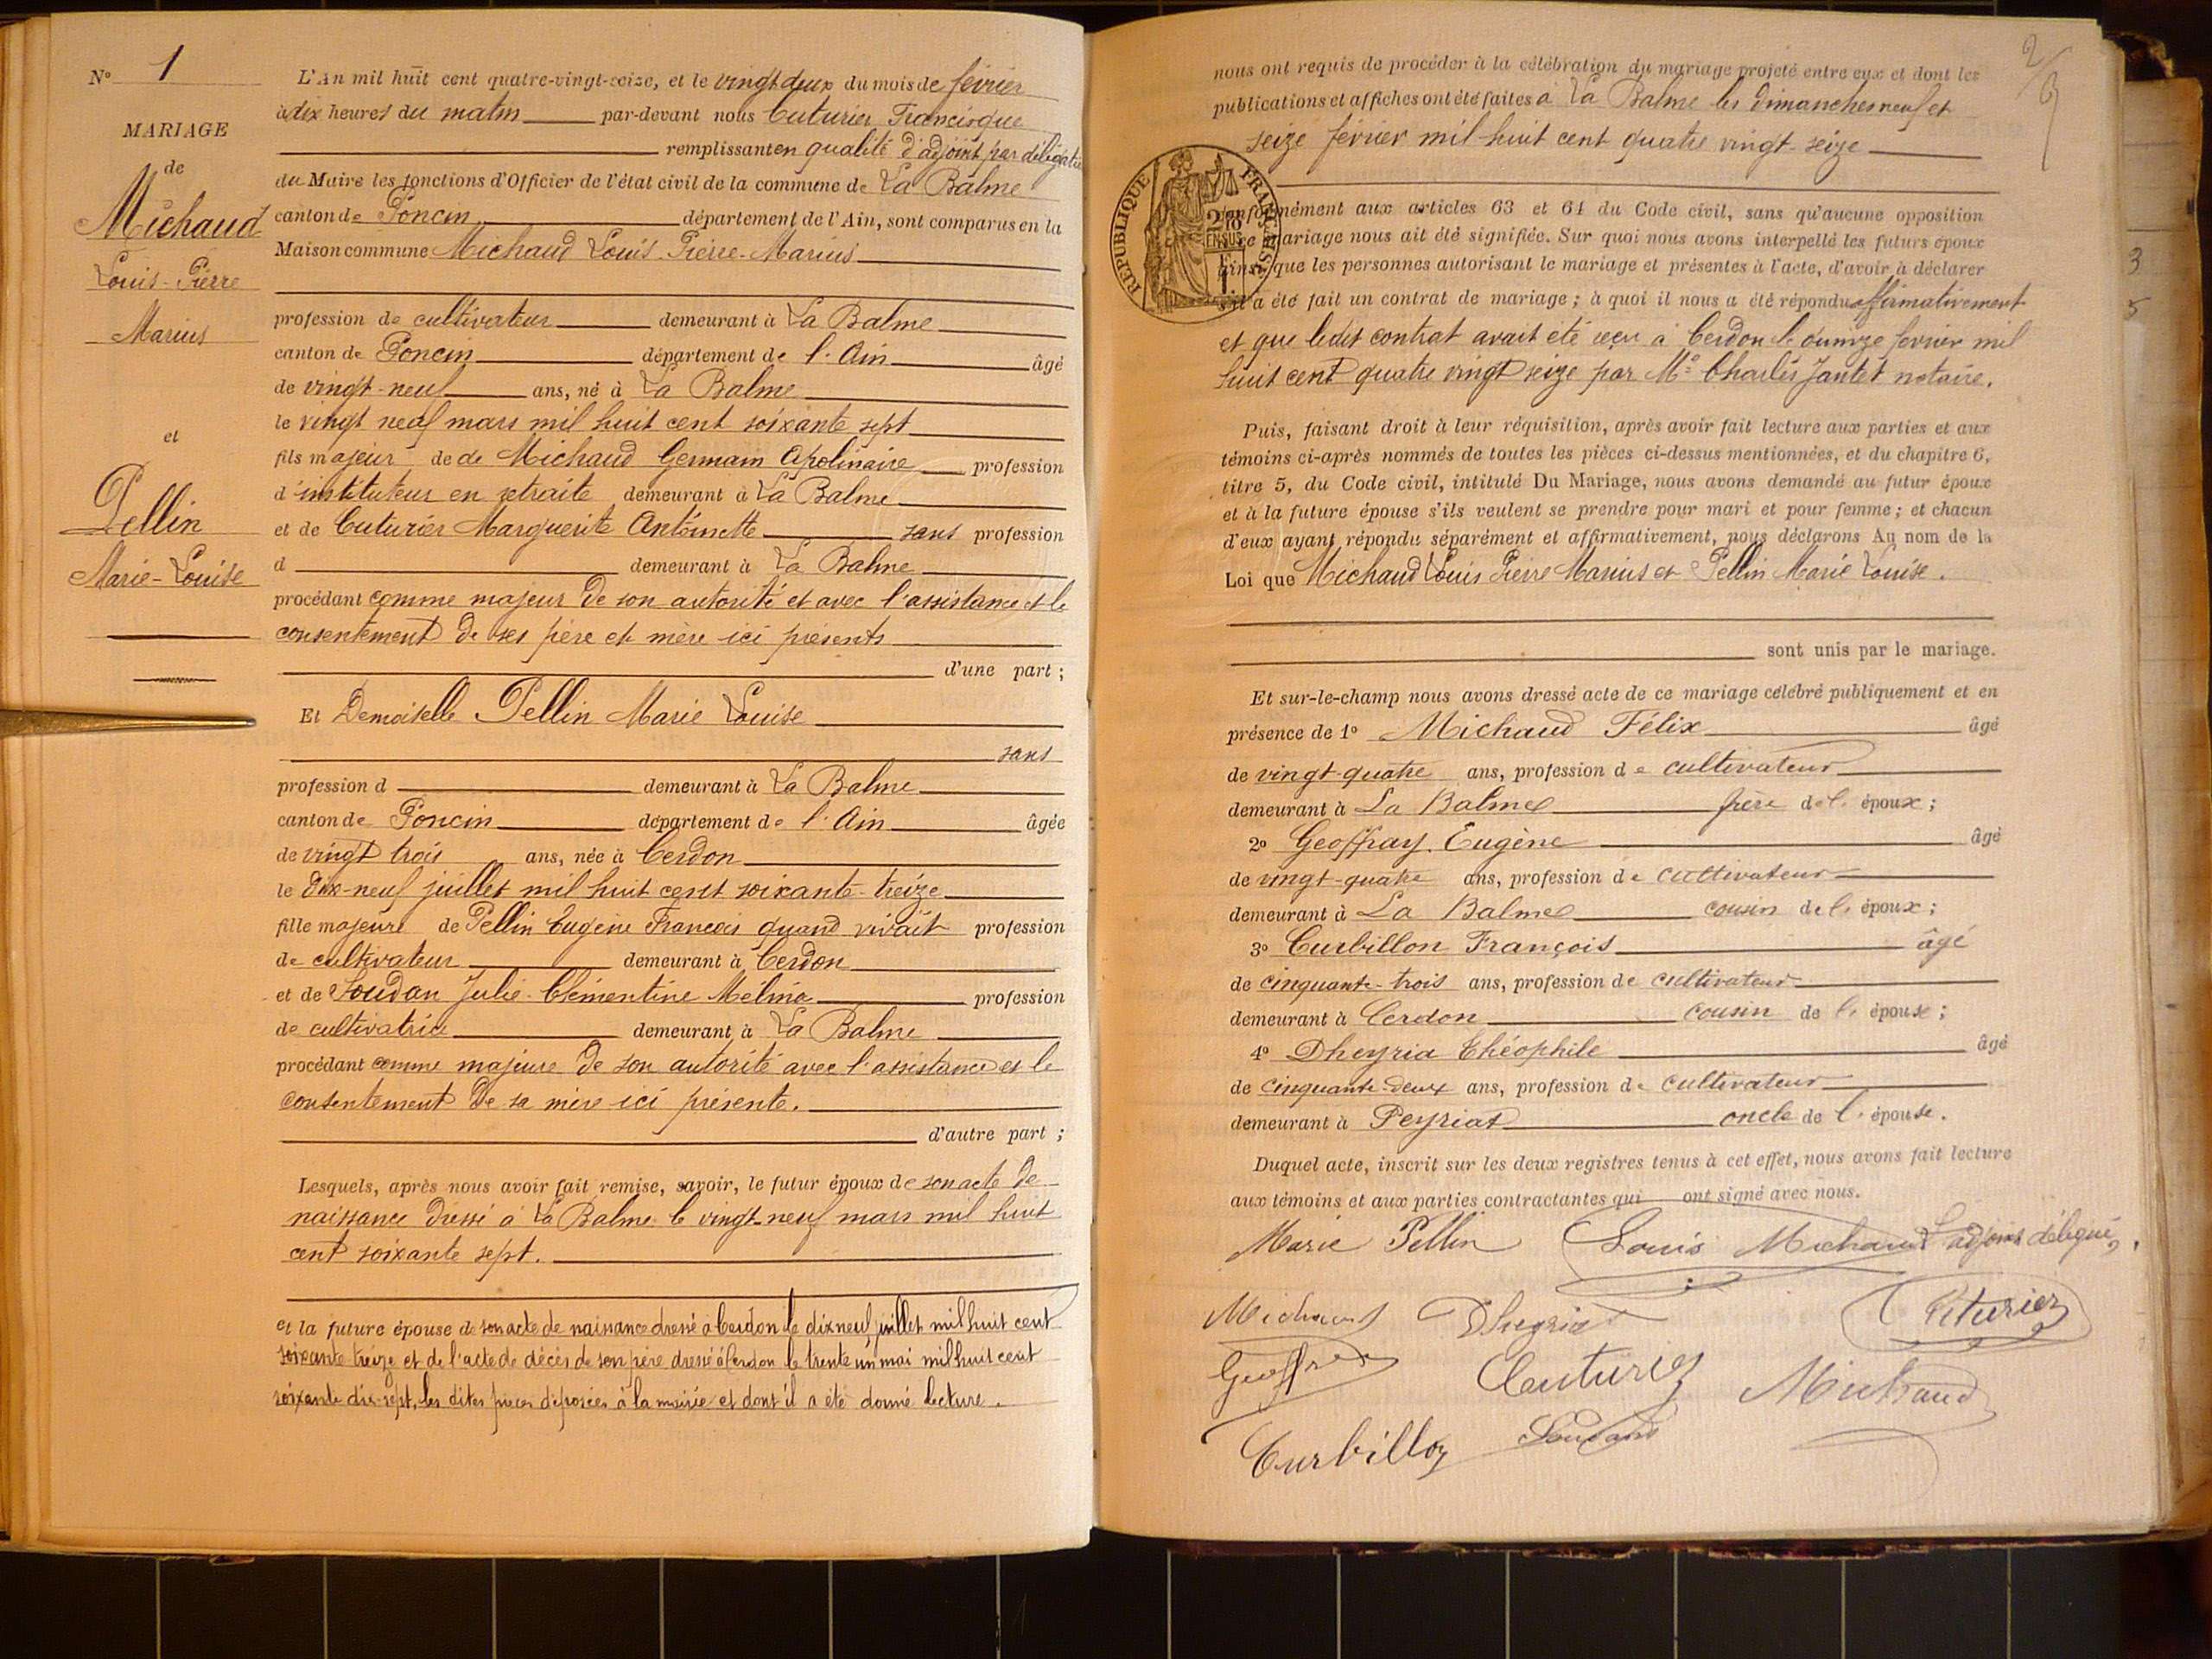 N° 1
MARIAGE
de
Michaud
Louis-Pierre
Marius
et
Pellin
Marie-Louise
L'An mil huit cent quatre-vingt-seize, et le vingt deux du mois de février
à dix heures du matin par-devant nous Cuturier Francisque
remplissant en qualité d'adjoint par délégation
du Maire les fonctions d'Officier de l'état civil de la commune de La Balme
canton de Poncin département de l'Ain, sont comparus en la
Maison commune Michaud Louis-Pierre-Marius
profession de cultivateur demeurant à La Balme
canton de Poncin département de l'Ain âgé
de vingt-neuf ans, né à La Balme
le vingt neuf mars mil huit cent soixante sept
fils majeur de de Michaud Germain Apolinaire profession
d'instituteur en retraite demeurant à La Balme
et de Cuturier Marguerite Antoinette sans profession
d demeurant à La Balme
procédant comme majeur de son autorité et avec l'assistance et le
consentement de ses père et mère ici présents
d'une part ;
Et Demoiselle Pellin Marie Louise
sans
profession d demeurant à La Balme
canton de Poncin département de l'Ain âgée
de vingt trois ans, née à Cerdon
le dix-neuf juillet mil huit cent soixante-treize
fille majeure de Pellin Eugène François quand vivait profession
de cultivateur demeurant à Cerdon
et de Soudan Julie-Clémentine Mélina profession
de cultivatrice demeurant à La Balme
procédant comme majeure de son autorité avec l'assistance et le
consentement de sa mère ici présente.
d'autre part ;
Lesquels, après nous avoir fait remise, savoir, le futur époux de son acte de
naissance dressé à La Balme le vingt neuf mars mil huit
cent soixante sept.
et la future épouse de son acte de naissance dressé à Cerdon le dix neuf juillet mil huit cent
soixante treize et de l'acte de décès de son père dressé à Cerdon le trente un mai mil huit cent
soixante dix-sept, les dites pièces déposées à la mairie et dont il a été donné lecture.
2
nous ont requis de procéder à la célébration du mariage projeté entre eux et dont les
publications et affiches ont été faites à La Balme les dimanches neuf et
seize février mil huit cent quatre vingt-seize
RÉPUBLIQUE FRANÇAISE
conformément aux articles 63 et 64 du Code civil, sans qu'aucune opposition
ce mariage nous ait été signifiée. Sur quoi nous avons interpellé les futurs époux
ainsi que les personnes autorisant le mariage et présentes à l'acte, d'avoir à déclarer
s'il a été fait un contrat de mariage ; à quoi il nous a été répondu affirmativement
et que ledit contrat avait été reçu à Cerdon le quinze février mil
huit cent quatre vingt seize par Me Charles Jantet notaire.
Puis, faisant droit à leur réquisition, après avoir fait lecture aux parties et aux
témoins ci-après nommés de toutes les pièces ci-dessus mentionnées, et du chapitre 6,
titre 5, du Code civil, intitulé Du Mariage, nous avons demandé au futur époux
et à la future épouse s'ils veulent se prendre pour mari et pour femme ; et chacun
d'eux ayant répondu séparément et affirmativement, nous déclarons Au nom de la
Loi que Michaud Louis Pierre Marius et Pellin Marie Louise.
sont unis par le mariage.
Et sur-le-champ nous avons dressé acte de ce mariage célébré publiquement et en
présence de 1° Michaud Félix âgé
de vingt-quatre ans, profession de cultivateur
demeurant à La Balme frère de l'époux ;
2° Geoffray Eugène âgé
de vingt-quatre ans, profession de cultivateur
demeurant à La Balme cousin de l'époux ;
3° Curbillon François âgé
de cinquante-trois ans, profession de cultivateur
demeurant à Cerdon cousin de l'épouse ;
4° Dheyria Théophile âgé
de cinquante-deux ans, profession de cultivateur
demeurant à Peyriat oncle de l'épouse.
Duquel acte, inscrit sur les deux registres tenus à cet effet, nous avons fait lecture
aux témoins et aux parties contractantes qui ont signé avec nous.
Marie Pellin Louis Michaud L'adjoint délégué,
Michaud Dheyria Cuturier
Geoffray Cuturier Michaud
Curbillon Soudan
3
5